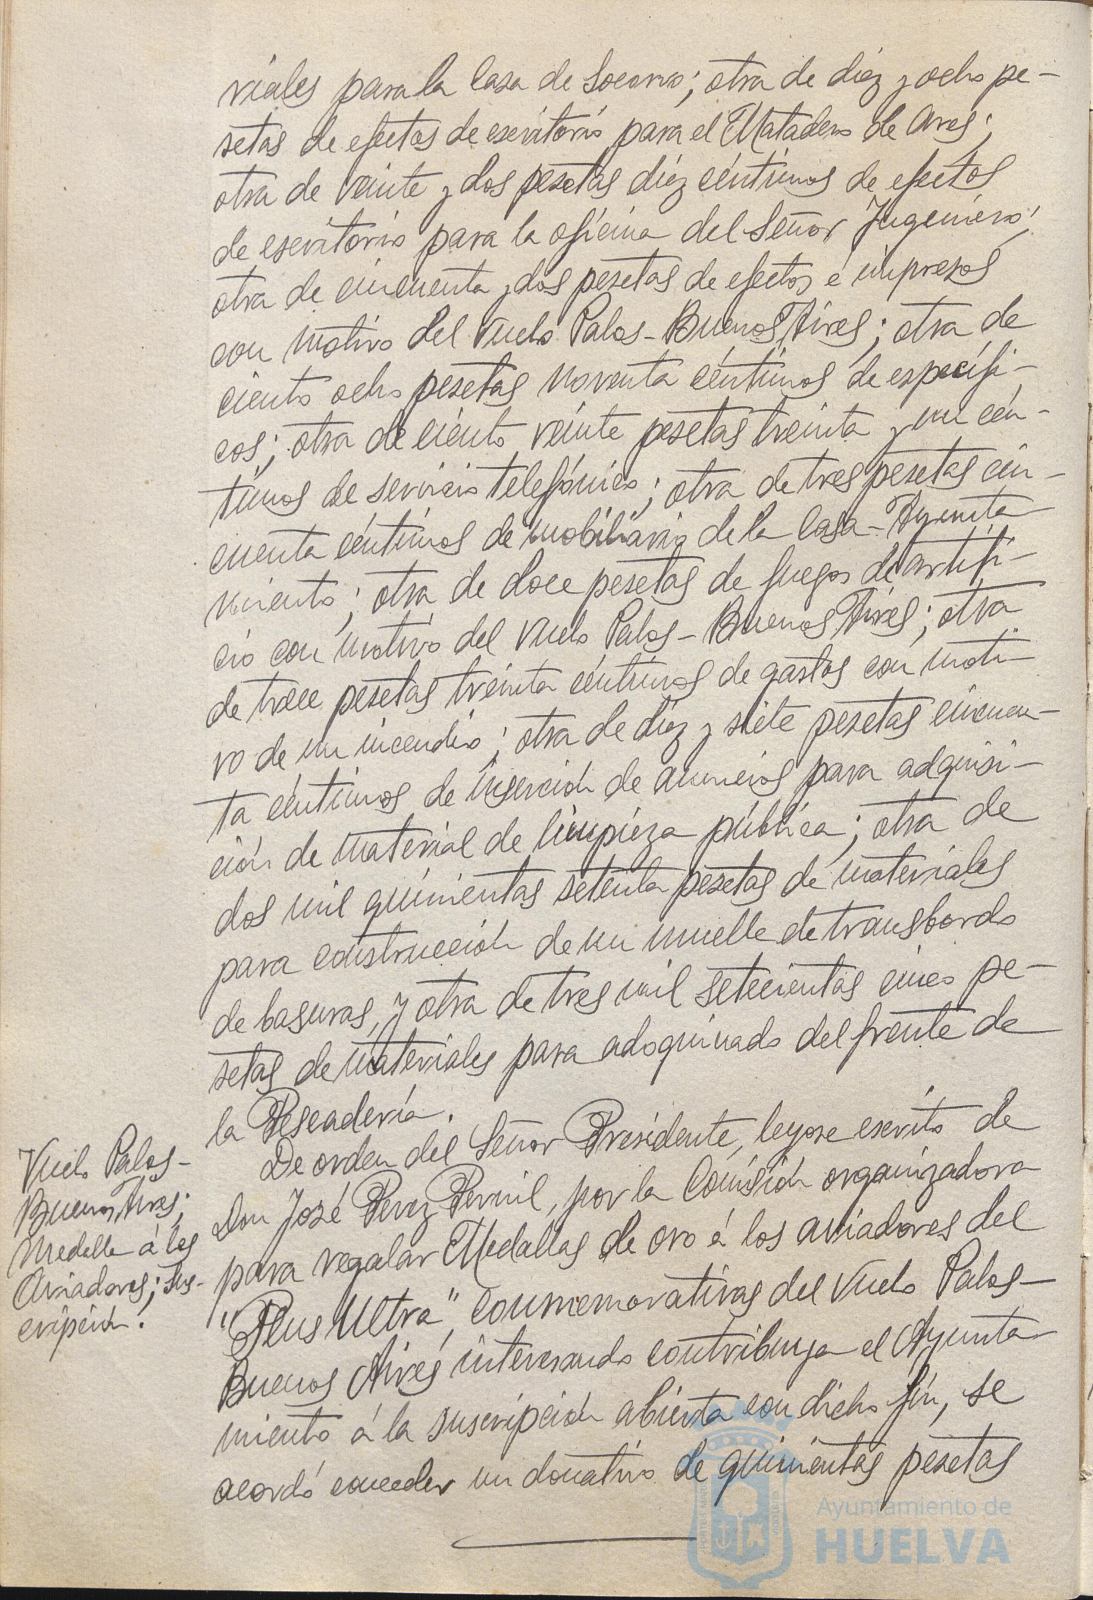 riales para la Casa de Socorro; otra de diez y ocho pe-
setas de efectos de escritorio para el Matadero de Aves;
otra de veinte y dos pesetas diez céntimos de efectos
de escritorio para la oficina del Señor Ingeniero;
otra de cincuenta y dos pesetas de efectos é impresos
con motivo del Vuelo Palos-Buenos Aires; otra de
ciento ocho pesetas noventa céntimos de específi-
cos; otra de ciento veinte pesetas treinta y un cén-
timos de servicio telefónico; otra de tres pesetas cin-
cuenta céntimos de mobiliario de la Casa-Ayunta
miento; otra de doce pesetas de fuegos de artifi-
cio con motivo del vuelo Palos-Buenos Aires; otra
de trece pesetas treinta céntimos de gastos con moti-
vo de un incendio; otra de diez y siete pesetas cincuen-
ta céntimos de inserción de anuncios para adquisi-
ción de material de limpieza pública; otra de
dos mil quinientas setenta pesetas de materiales
para construcción de un muelle de transbordo
de basuras, y otra de tres mil setecientas cinco pe-
setas de materiales para adoquinado del frente de
la Pescadería.
Vuelo Palos-
Buenos Aires;
Medalla á los
Aviadores; sus-
cripción.
De orden del Señor Presidente, leyose escrito de
Don José Perez Pernil, por la Comisión organizadora
para regalar Medallas de oro á los aviadores del
"Plus Ultra", conmemorativas del Vuelo Palos-
Buenos Aires interesando contribuya el Ayunta
miento á la suscripción abierta con dicho fin, se
acordó conceder un donativo de quinientas pesetas
Ayuntamiento de
HUELVA